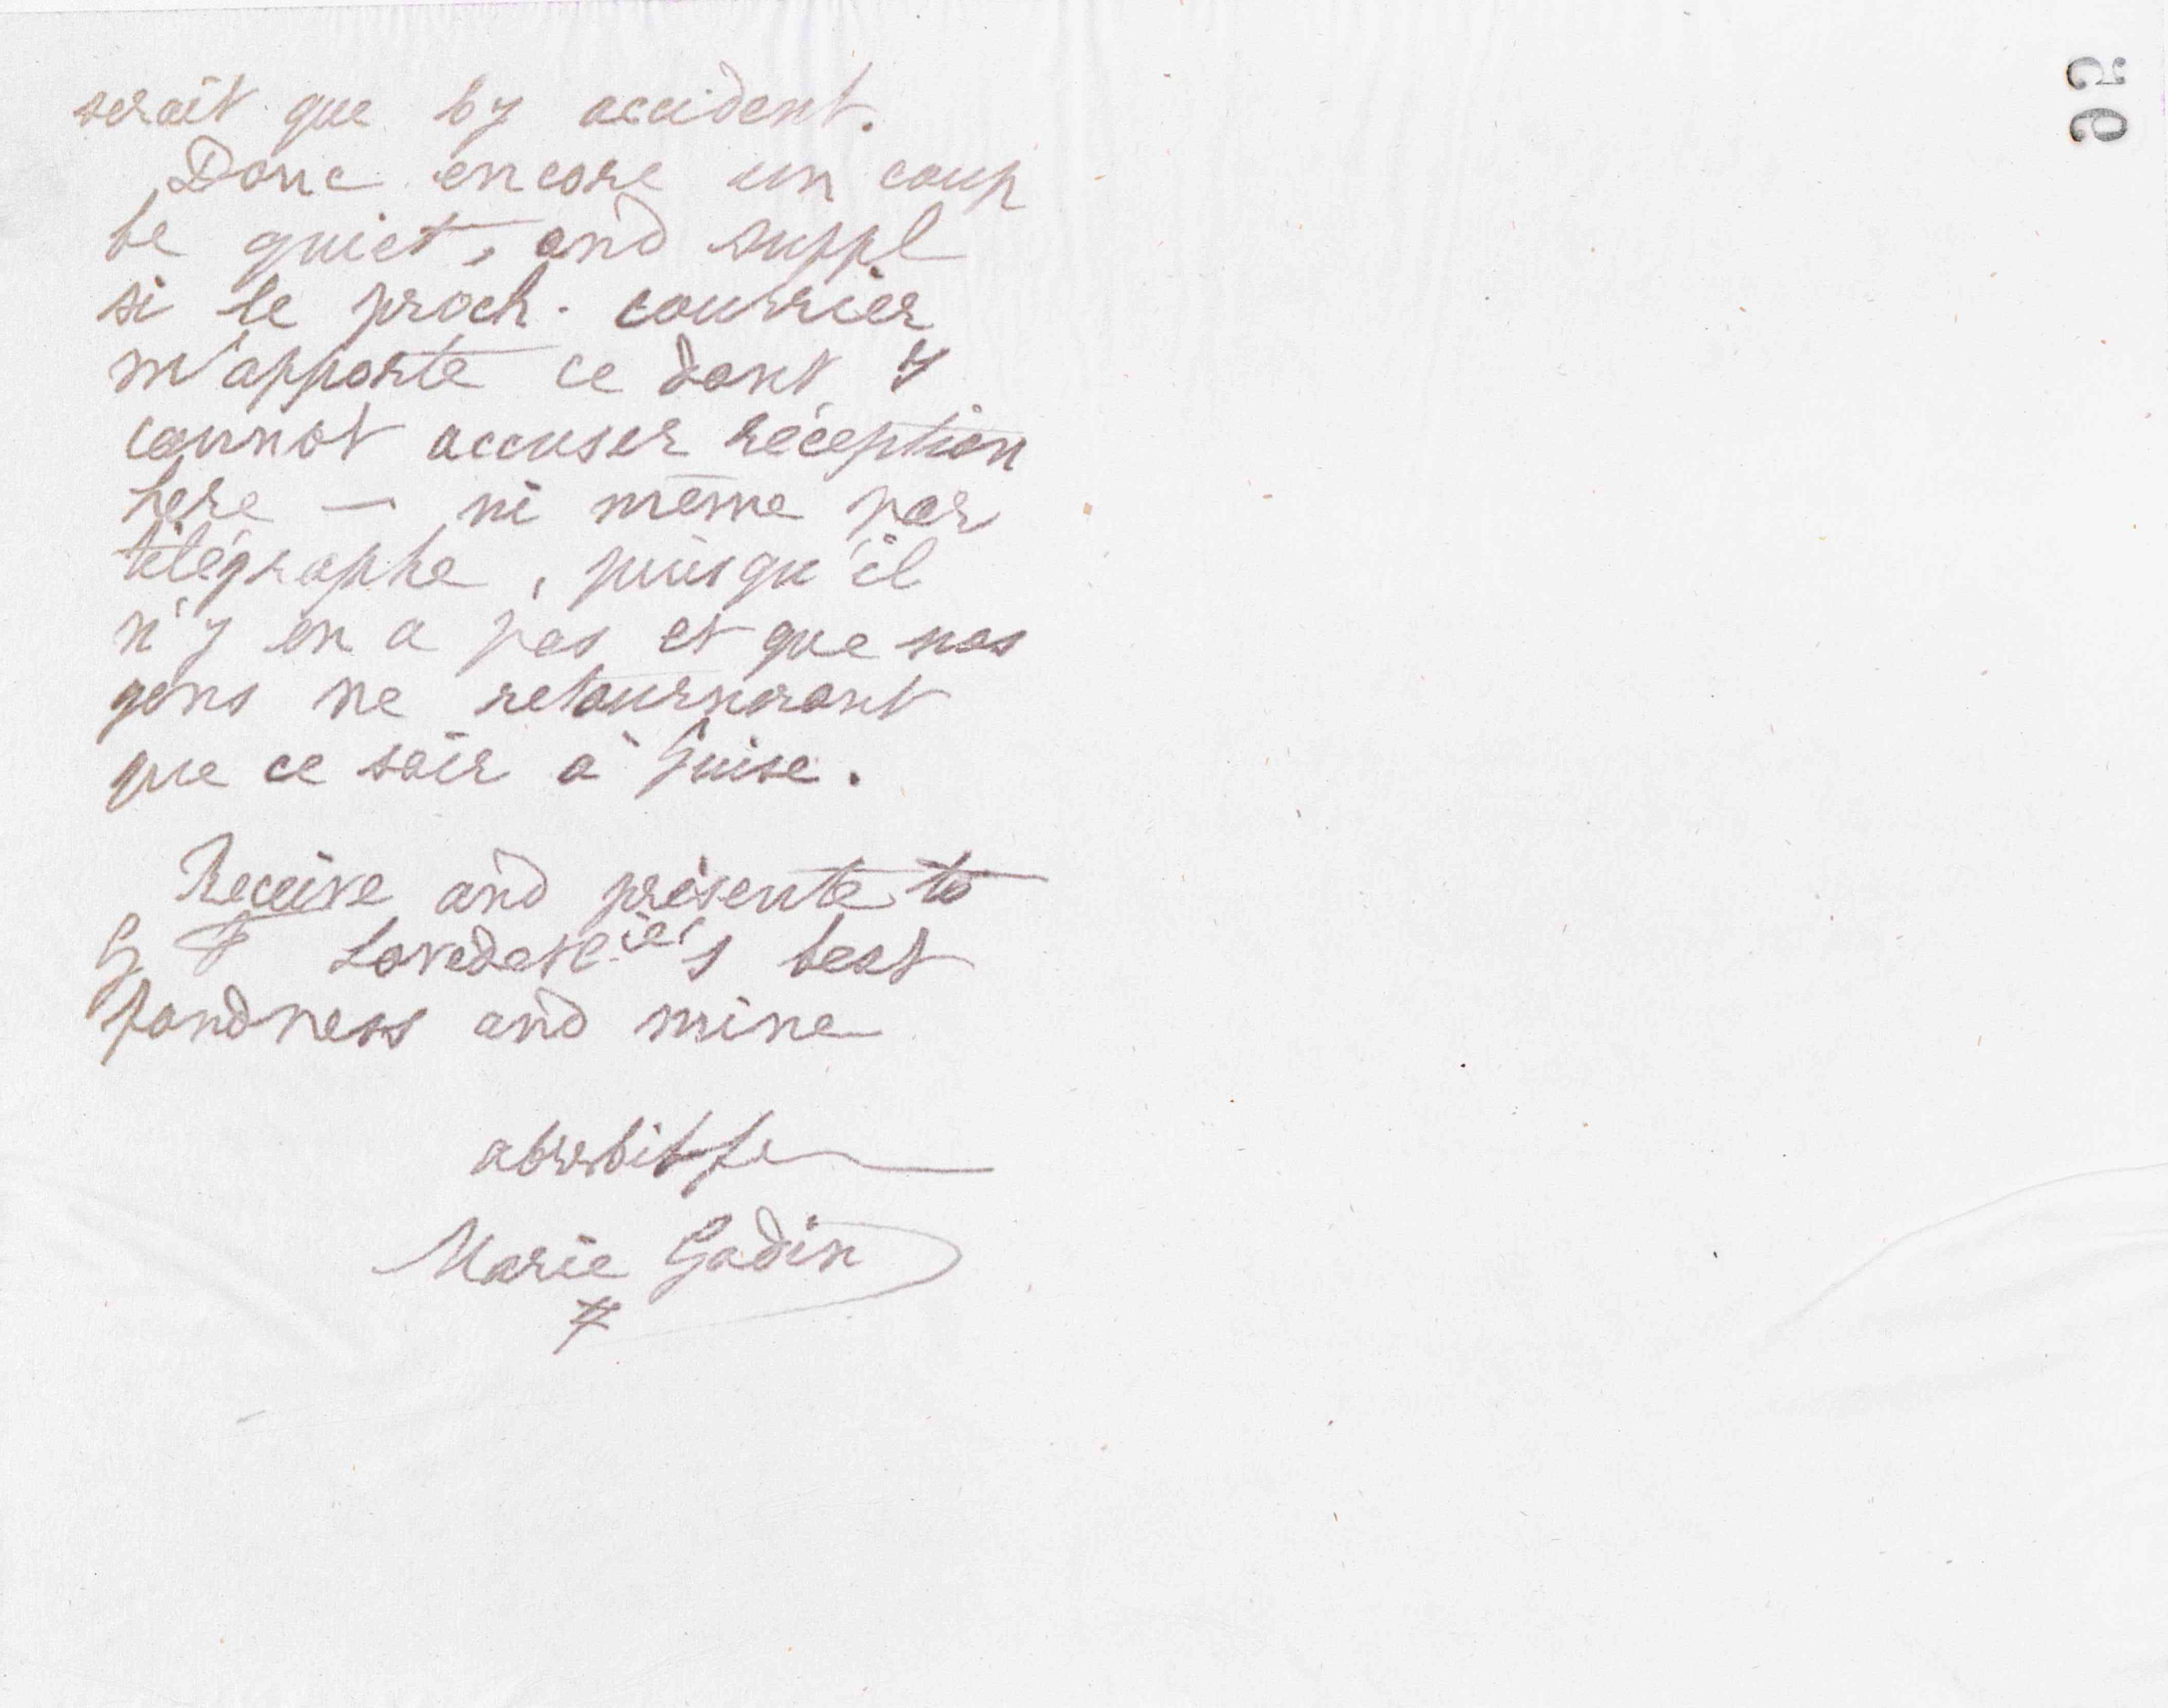 serait que by accident.
Donc encore un coup
be quiet, and suppl
si le proch. courrier
m'apporte ce dont y
cannot accuser réception
here — ni même par
télégraphe, puisqu'il
n'y en a pas et que nos
gens ne retourneront
que ce soir à Guise.
Receive and présente to
G F 's best
fondness and mine
Marie Godin
95